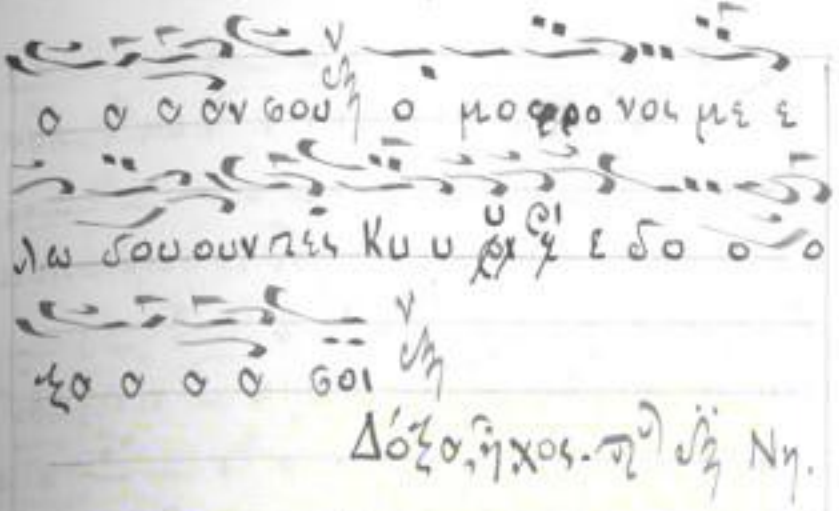 α α α αν σου ο μο φρο νος με ε
λω δου ου ουν τες Κυ υ ε δο ο ο
ξα α α α σοι
Δόξα, ἦχος. Νη.